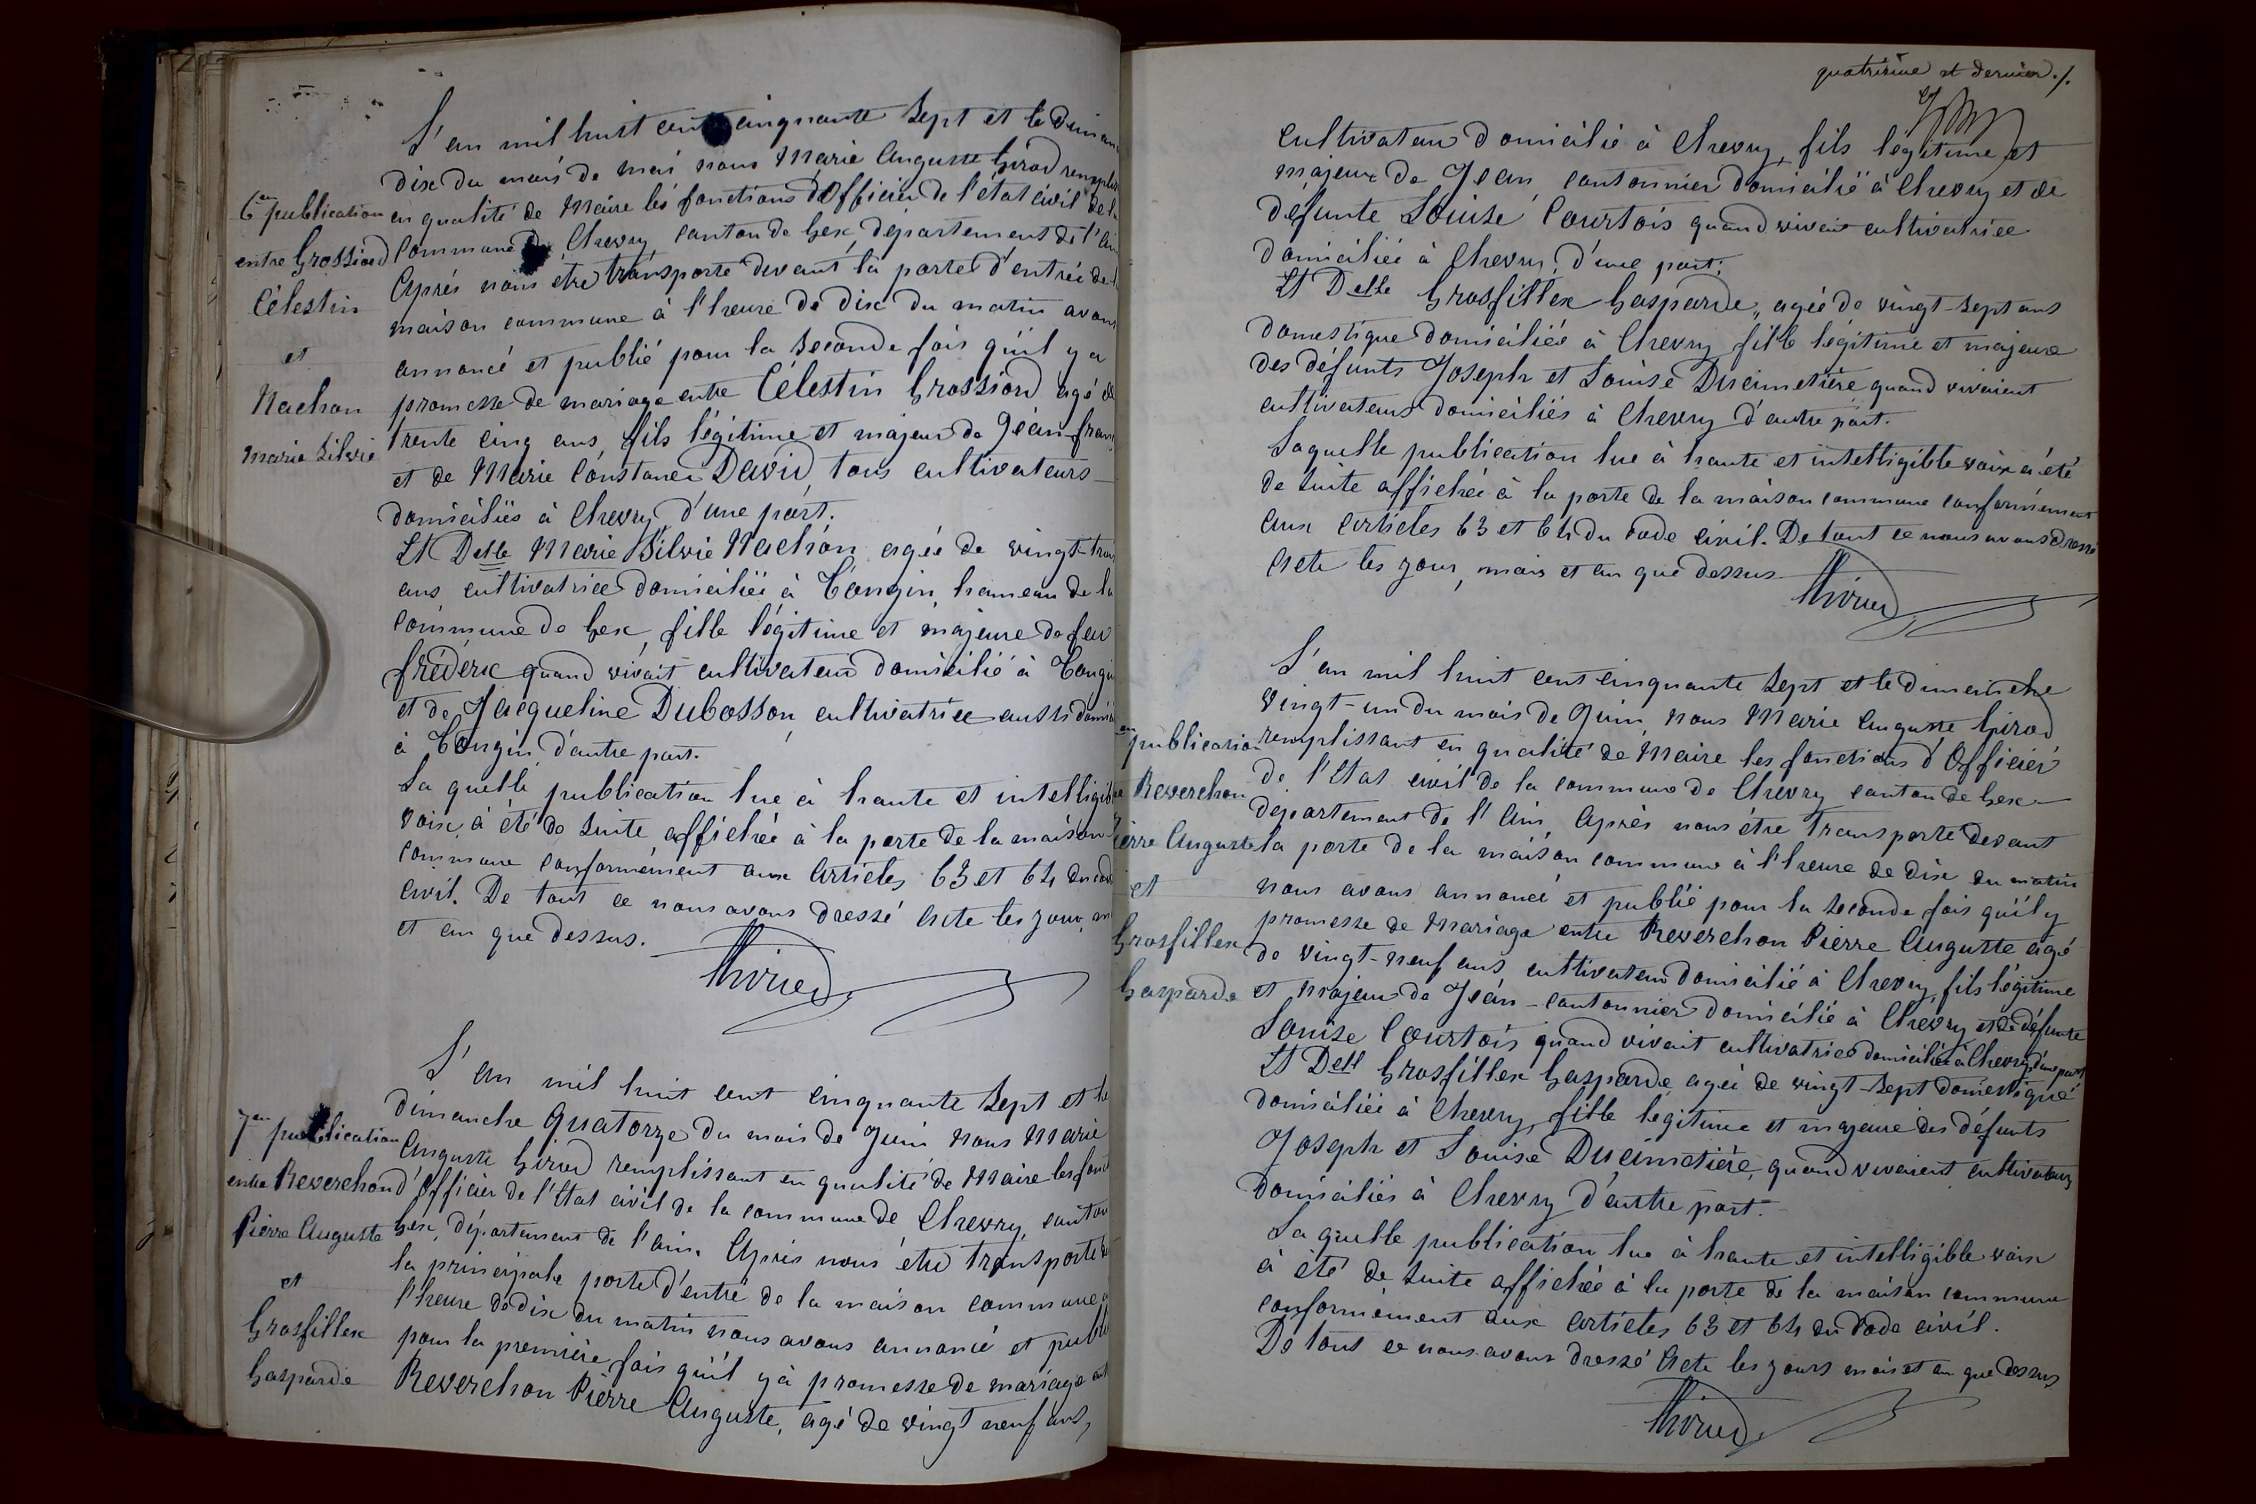 L'an mil huit cent cinquante Sept et le Diman
dix du mois de mai nous Marie Auguste Girod remplis
en qualité de Maire les fonctions d'Officier de l'état civil de la
Commune de Chevry, canton de Gex, département de l'Ain
Après nous être transporté devant la porte d'entrée de la
maison commune à l'heure de dix du matin avons
annoncé et publié pour la seconde fois qu'il y a
promesse de mariage entre Célestin Grossiord agé de
trente cinq ans, fils légitime et majeur de Jean fran
et de Marie Constance David, tous cultivateurs
domiciliés à Chevry d'une part.
Et Delle Marie Silvie Nachon agée de vingt-trois
ans cultivatrice domiciliée à Tougin, hameau de la
commune de Gex, fille légitime et majeure de feu
fréderic quand vivait cultivateur domicilié à Tougin
et de Jacqueline Dubosson cultivatrice aussi domici
à Tougin, d'autre part.
La quelle publication lue à haute et intelligible
voix, à été de suite affichée à la porte de la maison
commune conformément aux Articles 63 et 64 du code
civil. De tout ce nous avons dressé Acte les jour, m
et an que dessus.
6en publication
entre Grossiord
Célestin
et
Nachon
Marie Silvie
L'an mil huit cent cinquante Sept et le
dimanche Quatorze du mois de Juin Nous Marie
Auguste Girod remplissant en qualité de Maire les fonct
d'Officier de l'Etat civil de la commune de Chevry, canton
Gex, département de l'ain. Après nous être transporté de
la principale porte d'entré de la maison commune à
l'heure de dix du matin nous avons annoncé et publié
pour la première fois qu'il y à promesse de mariage ent
Reverchon Pierre Auguste, agé de vingt neuf ans,
7en publication
entre Reverchon
Pierre Auguste
et
Grosfillex
Gasparde
quatrième et dernier ./.
cultivateur domicilié à Chevry, fils légitime et
majeur de Jean cantonnier domicilié à Chevry et de
défunte Louise Courtois quand vivait cultivatrice
domiciliée à Chevry, d'une part.
Et Delle Grosfillex Gasparde, agée de vingt-sept ans
domestique domiciliée à Chevry, fille légitime et majeure
des défunts Joseph et Louise Ducimetière quand vivaient
cultivateurs domiciliés à Chevry d'autre part.
Laquelle publication lue à haute et intelligible voix à été
de suite affichée à la porte de la maison commune conformément
aux Articles 63 et 64 du Code civil. De tout ce nous avons dressé
Acte les jour, mois et an que dessus
L'an mil huit cent cinquante Sept et le dimanche
vingt-un du mois de Juin, nous Marie Auguste Girod
remplissant en qualité de Maire les fonctions d'Officier
de l'Etat civil de la commune de Chevry canton de Gex
département de l'Ain, Après nous être transporté devant
la porte de la maison commune à l'heure de dix du matin
nous avons annoncé et publié pour la seconde fois qu'il y
promesse de Mariage entre Reverchon Pierre Auguste agé
de vingt-neuf ans, cultivateur domicilié à Chevry, fils légitime
et majeur de Jean cantonnier domicilié à Chevry et de défunte
Louise Courtois quand vivait cultivatrice domiciliée à Chevry, d'une part
Et Dell Grosfillex Gasparde agée de vingt-sept domestique
domiciliée à Chevry, fille légitime et majeure des défunts
Joseph et Louise Ducimetière, quand vivaient cultivateurs
domiciliés à Chevry d'autre part.
La quelle publication lue à haute et intelligible voix
à été de suite affichée à la porte de la maison commune
conformément aux Articles 63 et 64 du Code civil.
De tout ce nous avons dressé Acte les jours mois et an que dessus
en publication
Reverchon
ierre Auguste
et
Grosfillex
Gasparde